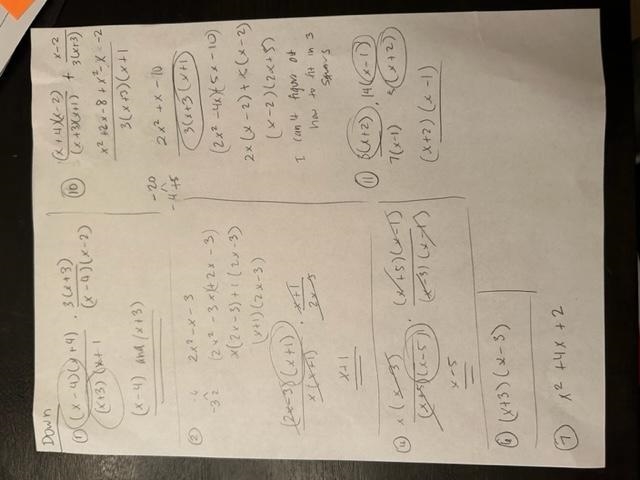 Down
① (x-4)(x+4) . 3(x+3)
(x+3)(x+1 (x-4)(x-2)
(x-4) and (x+3)
② 2x²-x-3
(2x²-3x)(+2x-3)
x(2x-3)+1(2x-3)
(x+1)(2x-3)
(2x-3)(x+1) . x+1
x(x+1) 2x-3
x+1
x(x-3) . (x+5)(x-1)
(x+5)(x-5) (x-3)(x-1)
x-5
⑥ (x+3)(x-3)
⑦ x²+4x+2
⑩ (x+4)(x-2) + x-2
(x+3)(x+1) 3(x+3)
x²+2x-8+x²-x=-2
3(x+3)(x+1
-20
-4+5
2x²+x-10
3(x+3(x+1)
(2x²-4x)(5x-10)
2x(x-2)+5(x-2)
(x-2)(2x+5)
I can't figure out
how to fit in 3
squares
⑪ 3(x+2) . 14(x-1)
7(x-1) (x+2)
(x+2)(x-1)